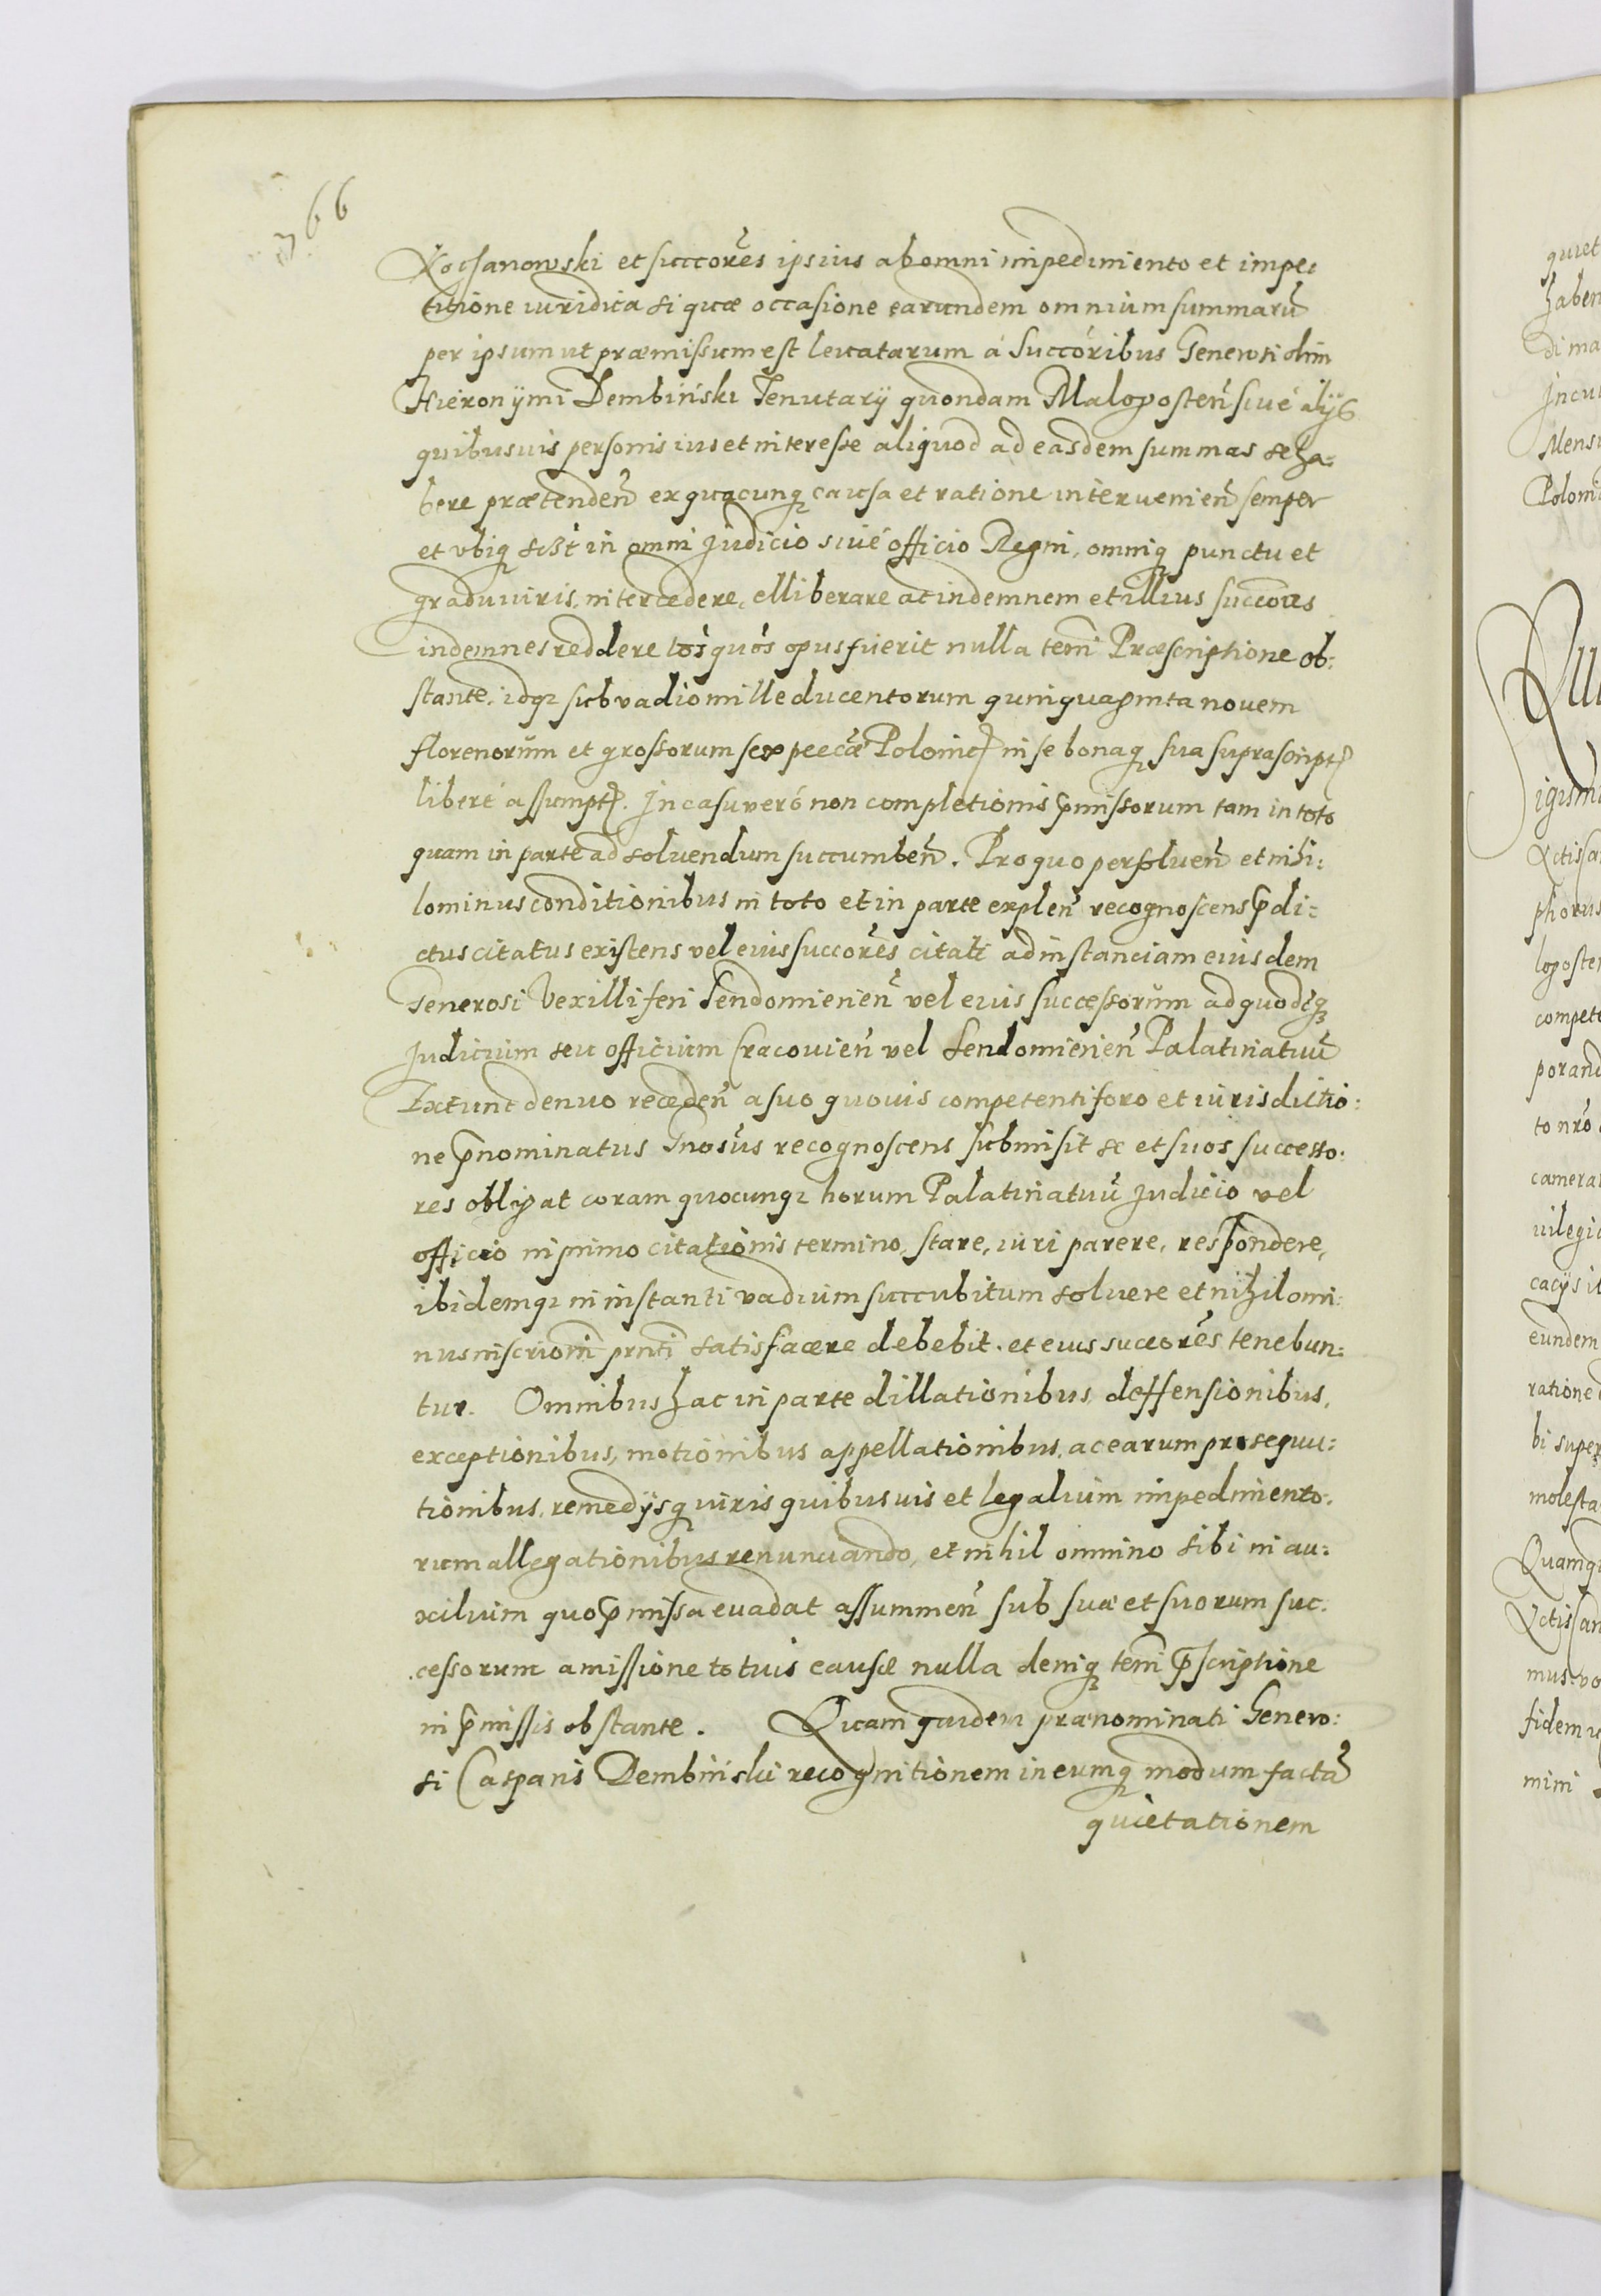 366
Kochanowski et succores ipsius ab omni impedimento et impe:
titione iuridica si quæ occasione earundem omnium summarũ
per ipsum ut præmissum est leuatarum á Succóribus Generosi olim
Hieronÿmi Dembiński Tenutarÿ quondam Maloposteñ siué alÿs
quibusuis personis ius et interesse aliquod ad easdem summas se ha:
bere prætendeñ ex quacunq̨ causa et ratione interuenieñ semper
et vbiq̨ in omni Judicio siué officio Regni, omniq̨ punctu et
gradu iuris, intercedere, elliberare ac indemnem et illius succores
indemnes reddere tós quós opus fuerit nulla tem̃ Præscriptione ob:
stante, idq̨ sub vadio mille ducentorum quinquaginta nouem
florenorũm et grossorum sex pecũæ Polonic̨ in se bonaq̨ sua suprascript̨
liberé assumpt̨. In casu veró non completionis p̃missorum tam in toto
quam in parte ad soluendum succumbeñ. Pro quo persolueñ et nihi:
lominus conditionibus in toto et in parte expleñ recognoscens p̃di:
ctus citatus existens vel eius succores citati ad instanciam eiusdem
Generosi Vexilliferi Sendomirieñ vel eius successorũm ad quodcq̨
Judicium seu officium Cracouieñ vel Sendomirieñ Palatinatuũ
Ex tunc denuo recedeñ a suo quouis competenti foro et iurisdictio:
ne p̃nominatus Gnosus recognoscens submisit se et suos successo:
res obligat coram quocunq̨ horum Palatinatuũ Judicio vel
officio in primo citationis termino, stare, iuri parere, respondere,
ibidemq̨ in instanti vadium succubitum soluere et nihilomi:
nus inscriom̃ pr̃nti satisfacere debebit. et eius succores tenebun:
tur. Omnibus hac in parte dillationibus, deffensionibus,
exceptionibus, motionibus appellationibus, ac earum prosequu:
tionibus, remedÿsq̨ iuris quibusuis et legalium impedimento:
rum allegationibus renunciando, et nihil omnino sibi in au:
xilium quo p̃missa euadat assummeñ sub suæ et suorum suc:
cessorum amissione totius causæ nulla deniq̨ tem̃ p̃scriptione
in p̃missis obstante. Quam quidem prænominati Genero:
si Casparis Dembiński recognitionem in eumq̨ modum factã
quietationem